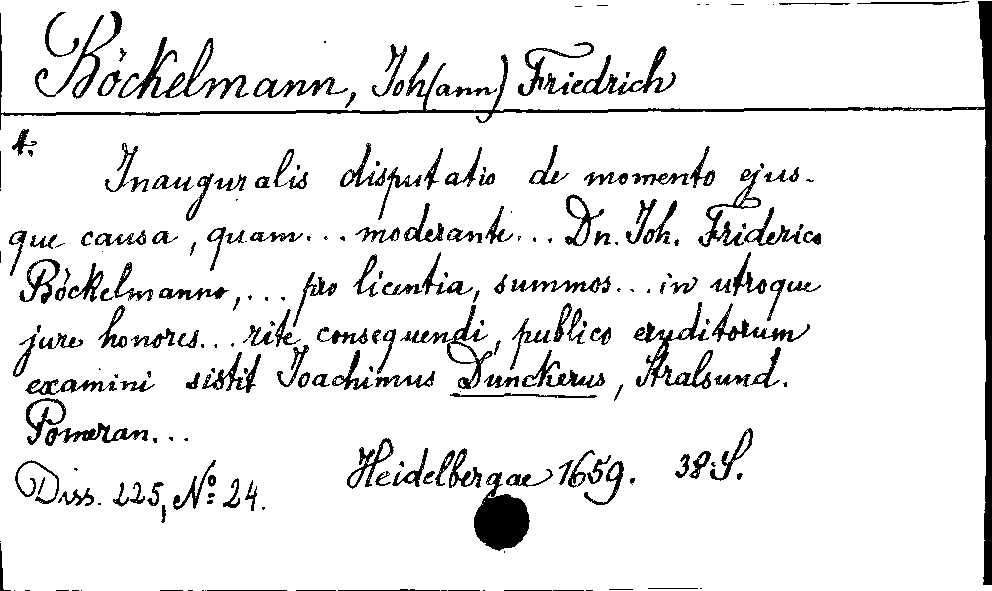 Böckelmann, Joh(ann) Friedrich
1.
Inauguralis disputatio de momento ejus-
que causa, quam... moderante... Dn. Joh. Friderico
Böckelmanno,... pro licentia, summos... in utroque
jure honores... rite consequendi, publico eruditorum
examini sistit Joachimus Dunckerus, Stralsund.
Pomeran...
Heidelbergae 1659. 38 S.
Diss. 225, No. 24.